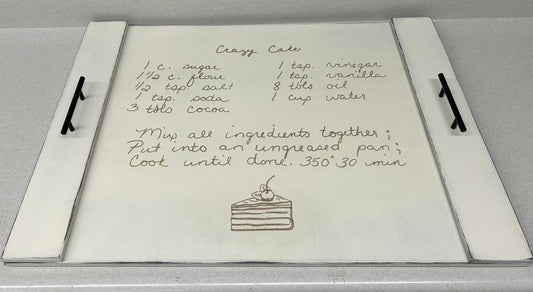 Crazy Cake
1 c. sugar
1 1/2 c. flour
1/2 tsp salt
1 tsp. soda
3 tbls cocoa
1 tsp. vinegar
1 tsp. vanilla
8 tbls oil
1 cup water
Mix all ingredients together;
Put into an ungreased pan;
Cook until done. 350° 30 min